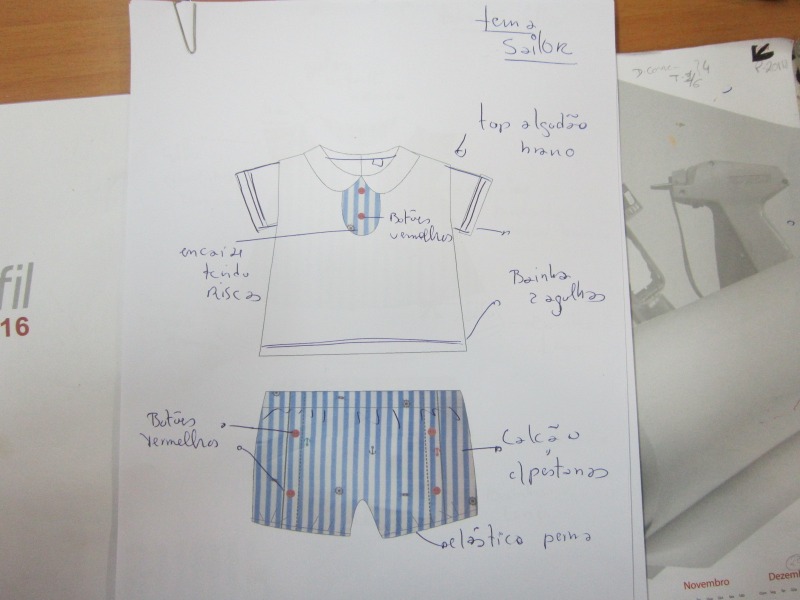 tema
SailOR
top algodão
brano
Botões
vermelhos
encaixe
tecido
Riscas
Bainha
2 agulhas
Botões
vermelhos
Calcão
c/pestanas
elástico perna
fil
16
Novembro
Dezemb